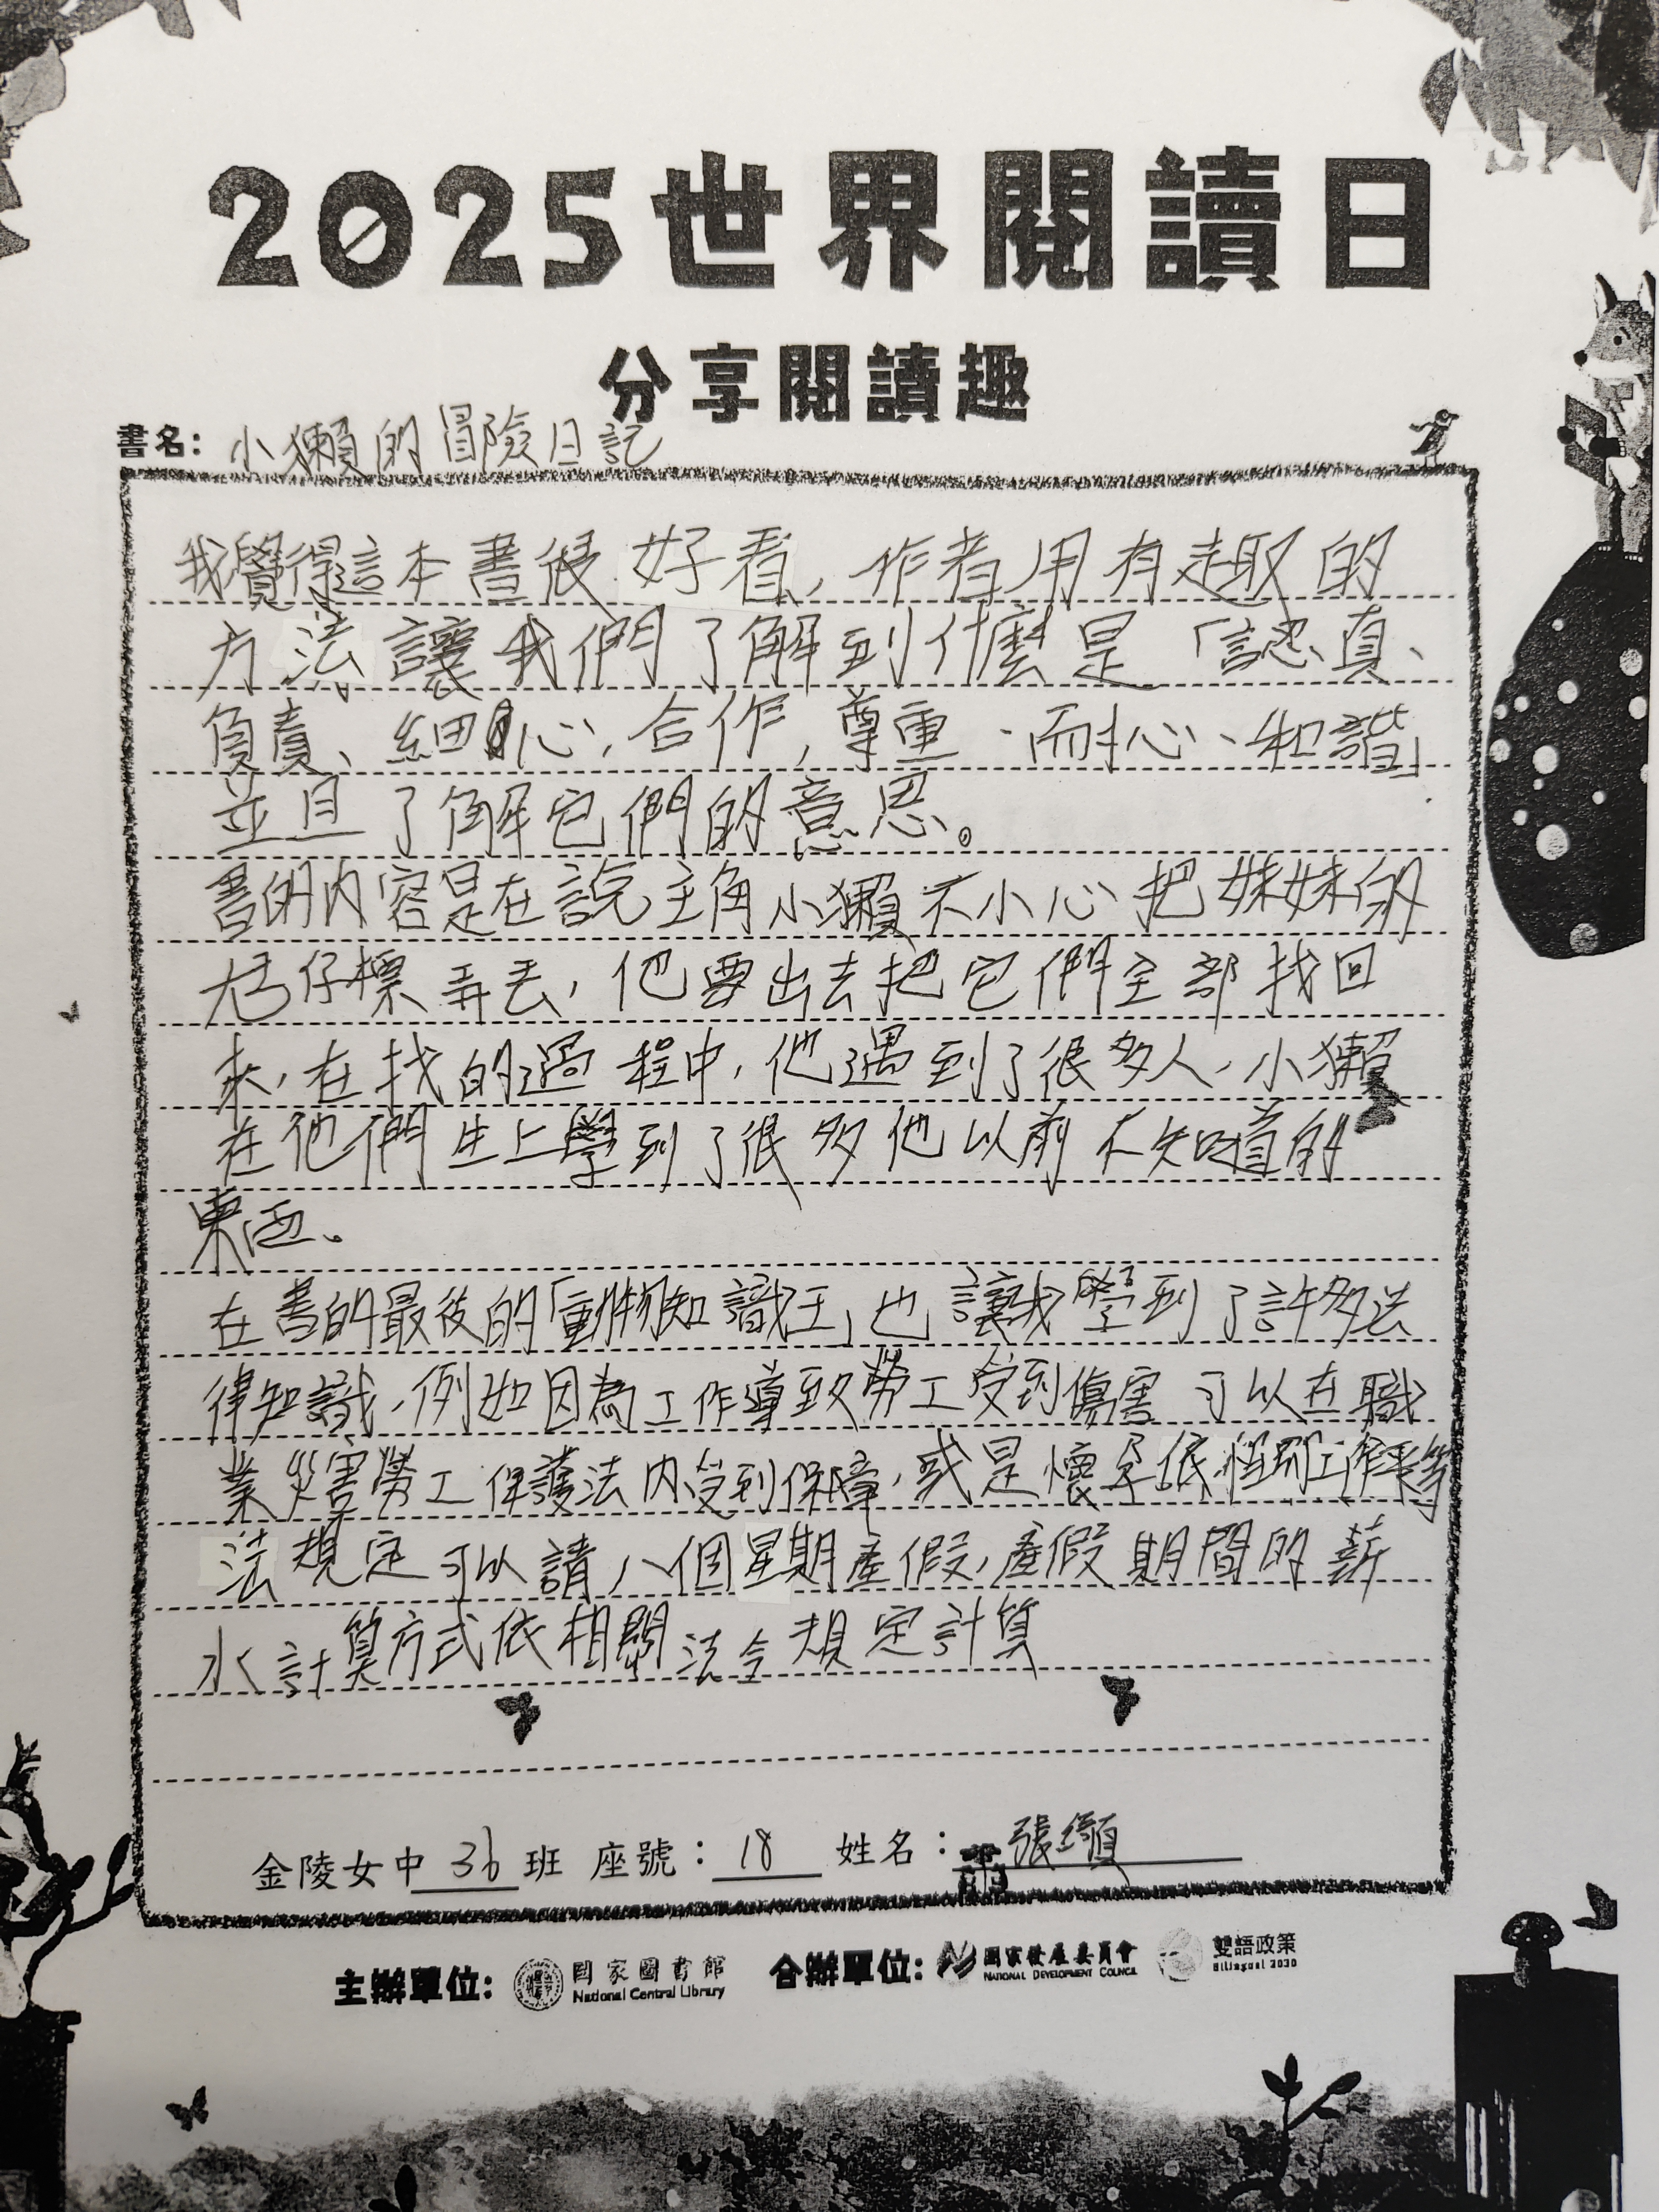 2025世界閱讀日
分享閱讀趣
書名：小獺的冒險日記
我覺得這本書很好看，作者用有趣的
方法讓我們了解到什麼是「認真、
負責、細心、合作、尊重、耐心、和諧」
並且了解它們的意思。
書的內容是在說主角小獺不小心把妹妹的
尪仔標弄丟，他要出去把它們全部找回
來，在找的過程中，他遇到了很多人，小獺
在他們生上學到了很多他以前不知道的
東西。
在書的最後的「動物知識王」也讓我學到了許多法
律知識，例如因為工作導致勞工受到傷害可以在職
業災害勞工保護法內受到保障，或是懷孕依性別工作平等
法規定可以請八個星期產假，產假期間的薪
水計算方式依相關法令規定計算
金陵女中 36 班 座號：18 姓名：張
主辦單位：國家圖書館 National Central Library 合辦單位：國家發展委員會 NATIONAL DEVELOPMENT COUNCIL 雙語政策 Bilingual 2030